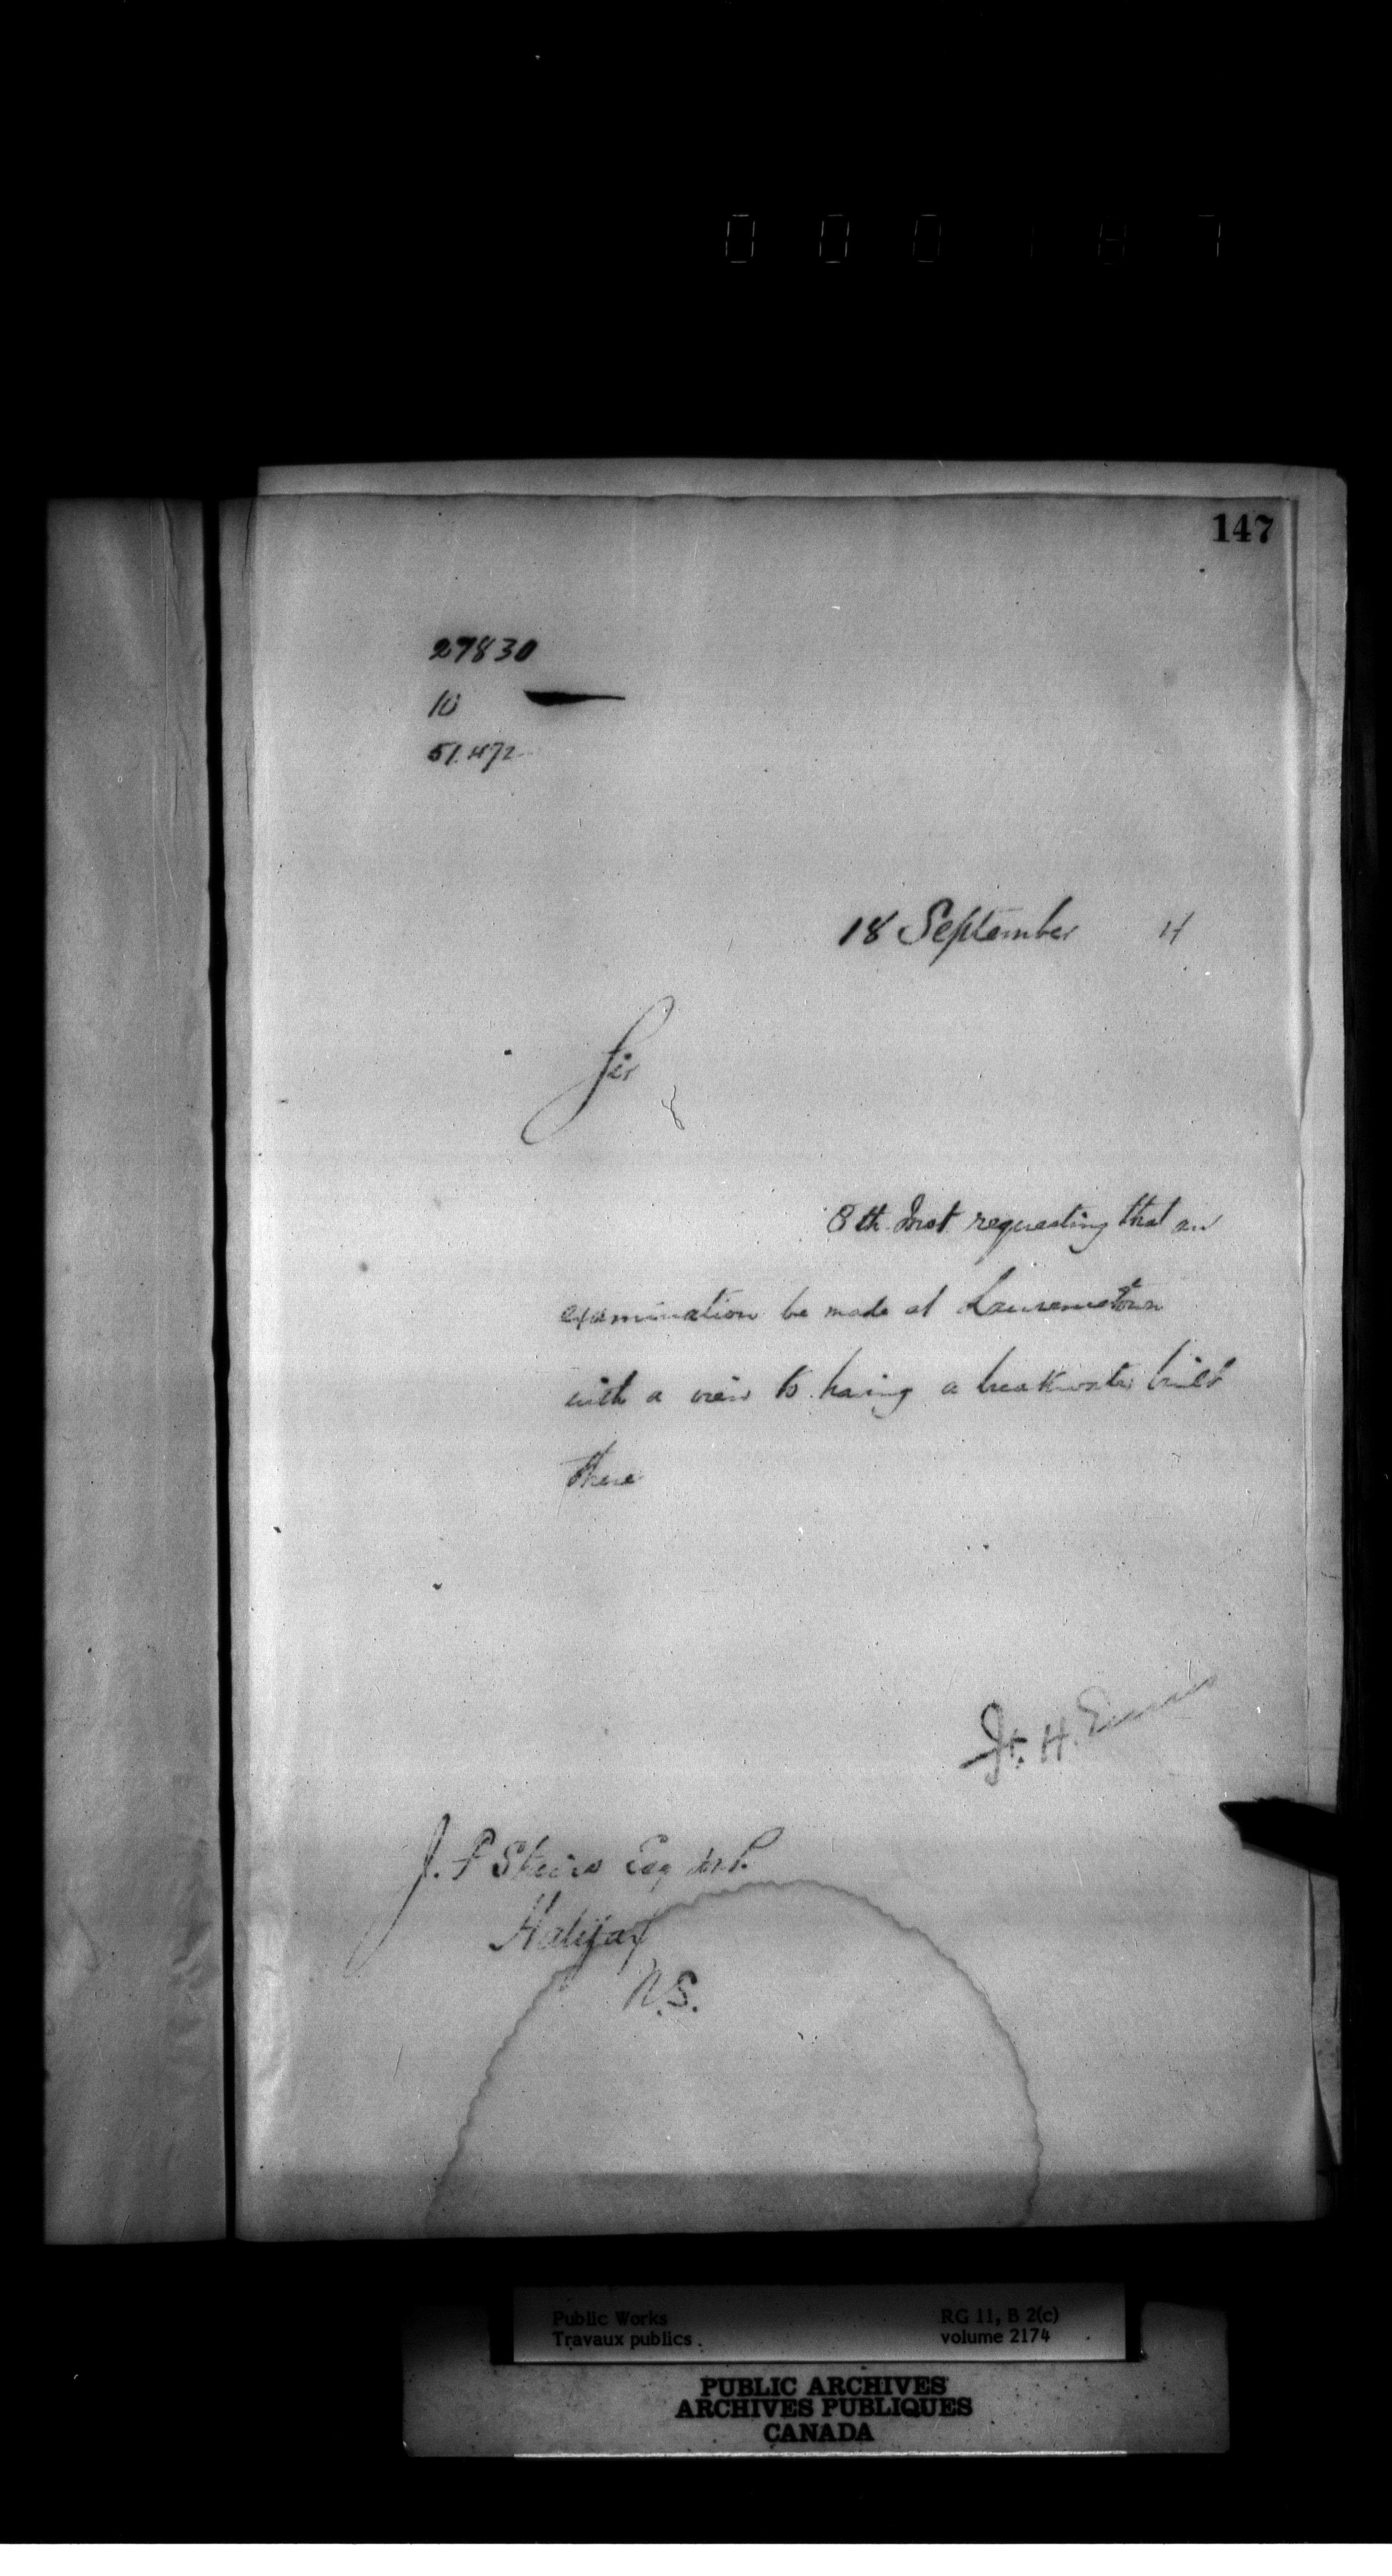 000187
147
27830
10
51.472
18 September 4
Sir
8th Inst requesting that an
examination be made at Lawrencetown
with a view to having a breakwater built
there
H.
J. Esq M.P.
Halifax
N.S.
Public Works
Travaux publics
RG 11, B 2(c)
volume 2174
PUBLIC ARCHIVES
ARCHIVES PUBLIQUES
CANADA